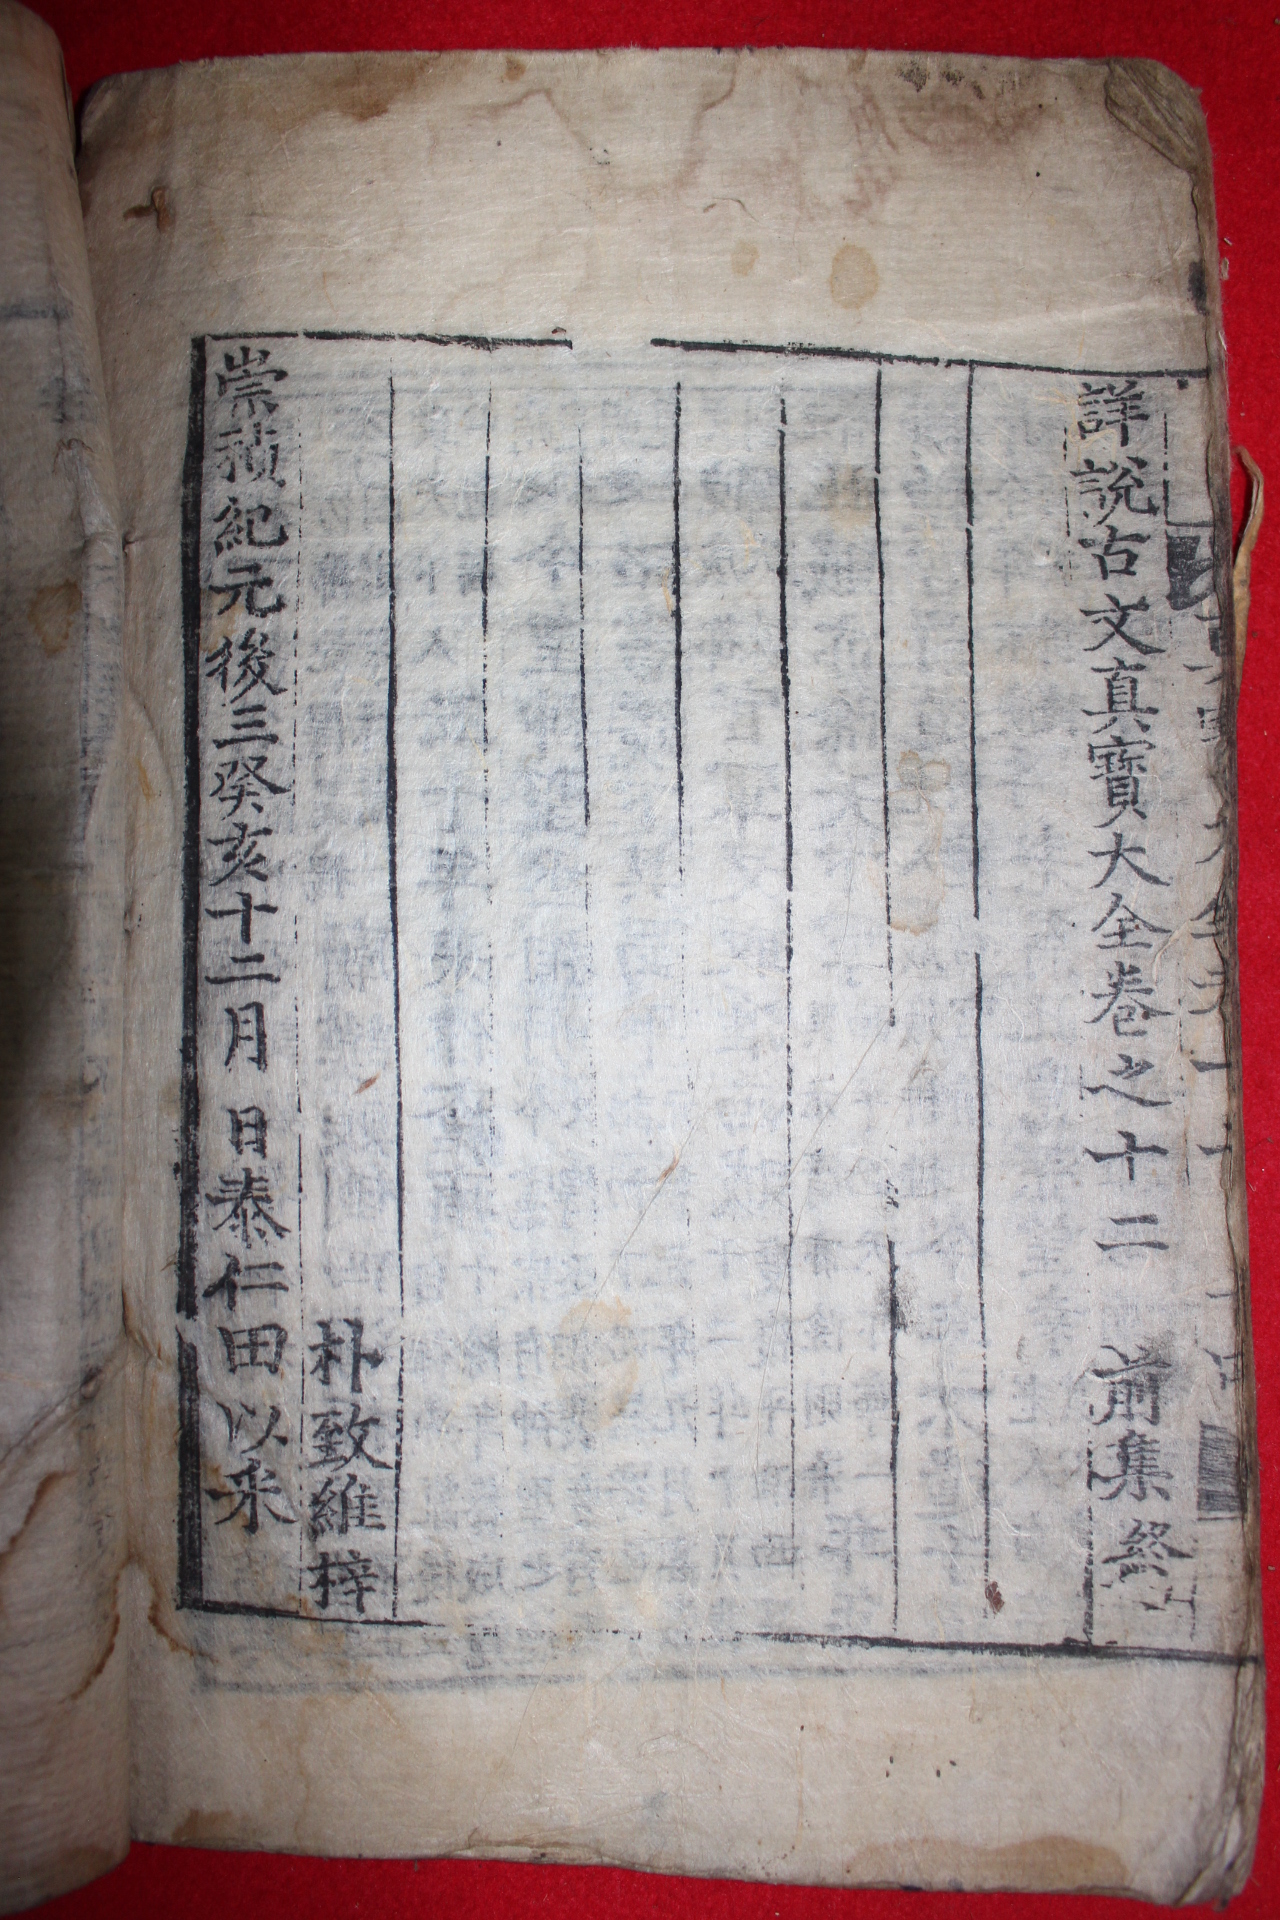 詳說古文真寶大全卷之十二 前集 終
朴致維梓
崇禎紀元後三癸亥十二月 日泰仁田以釆